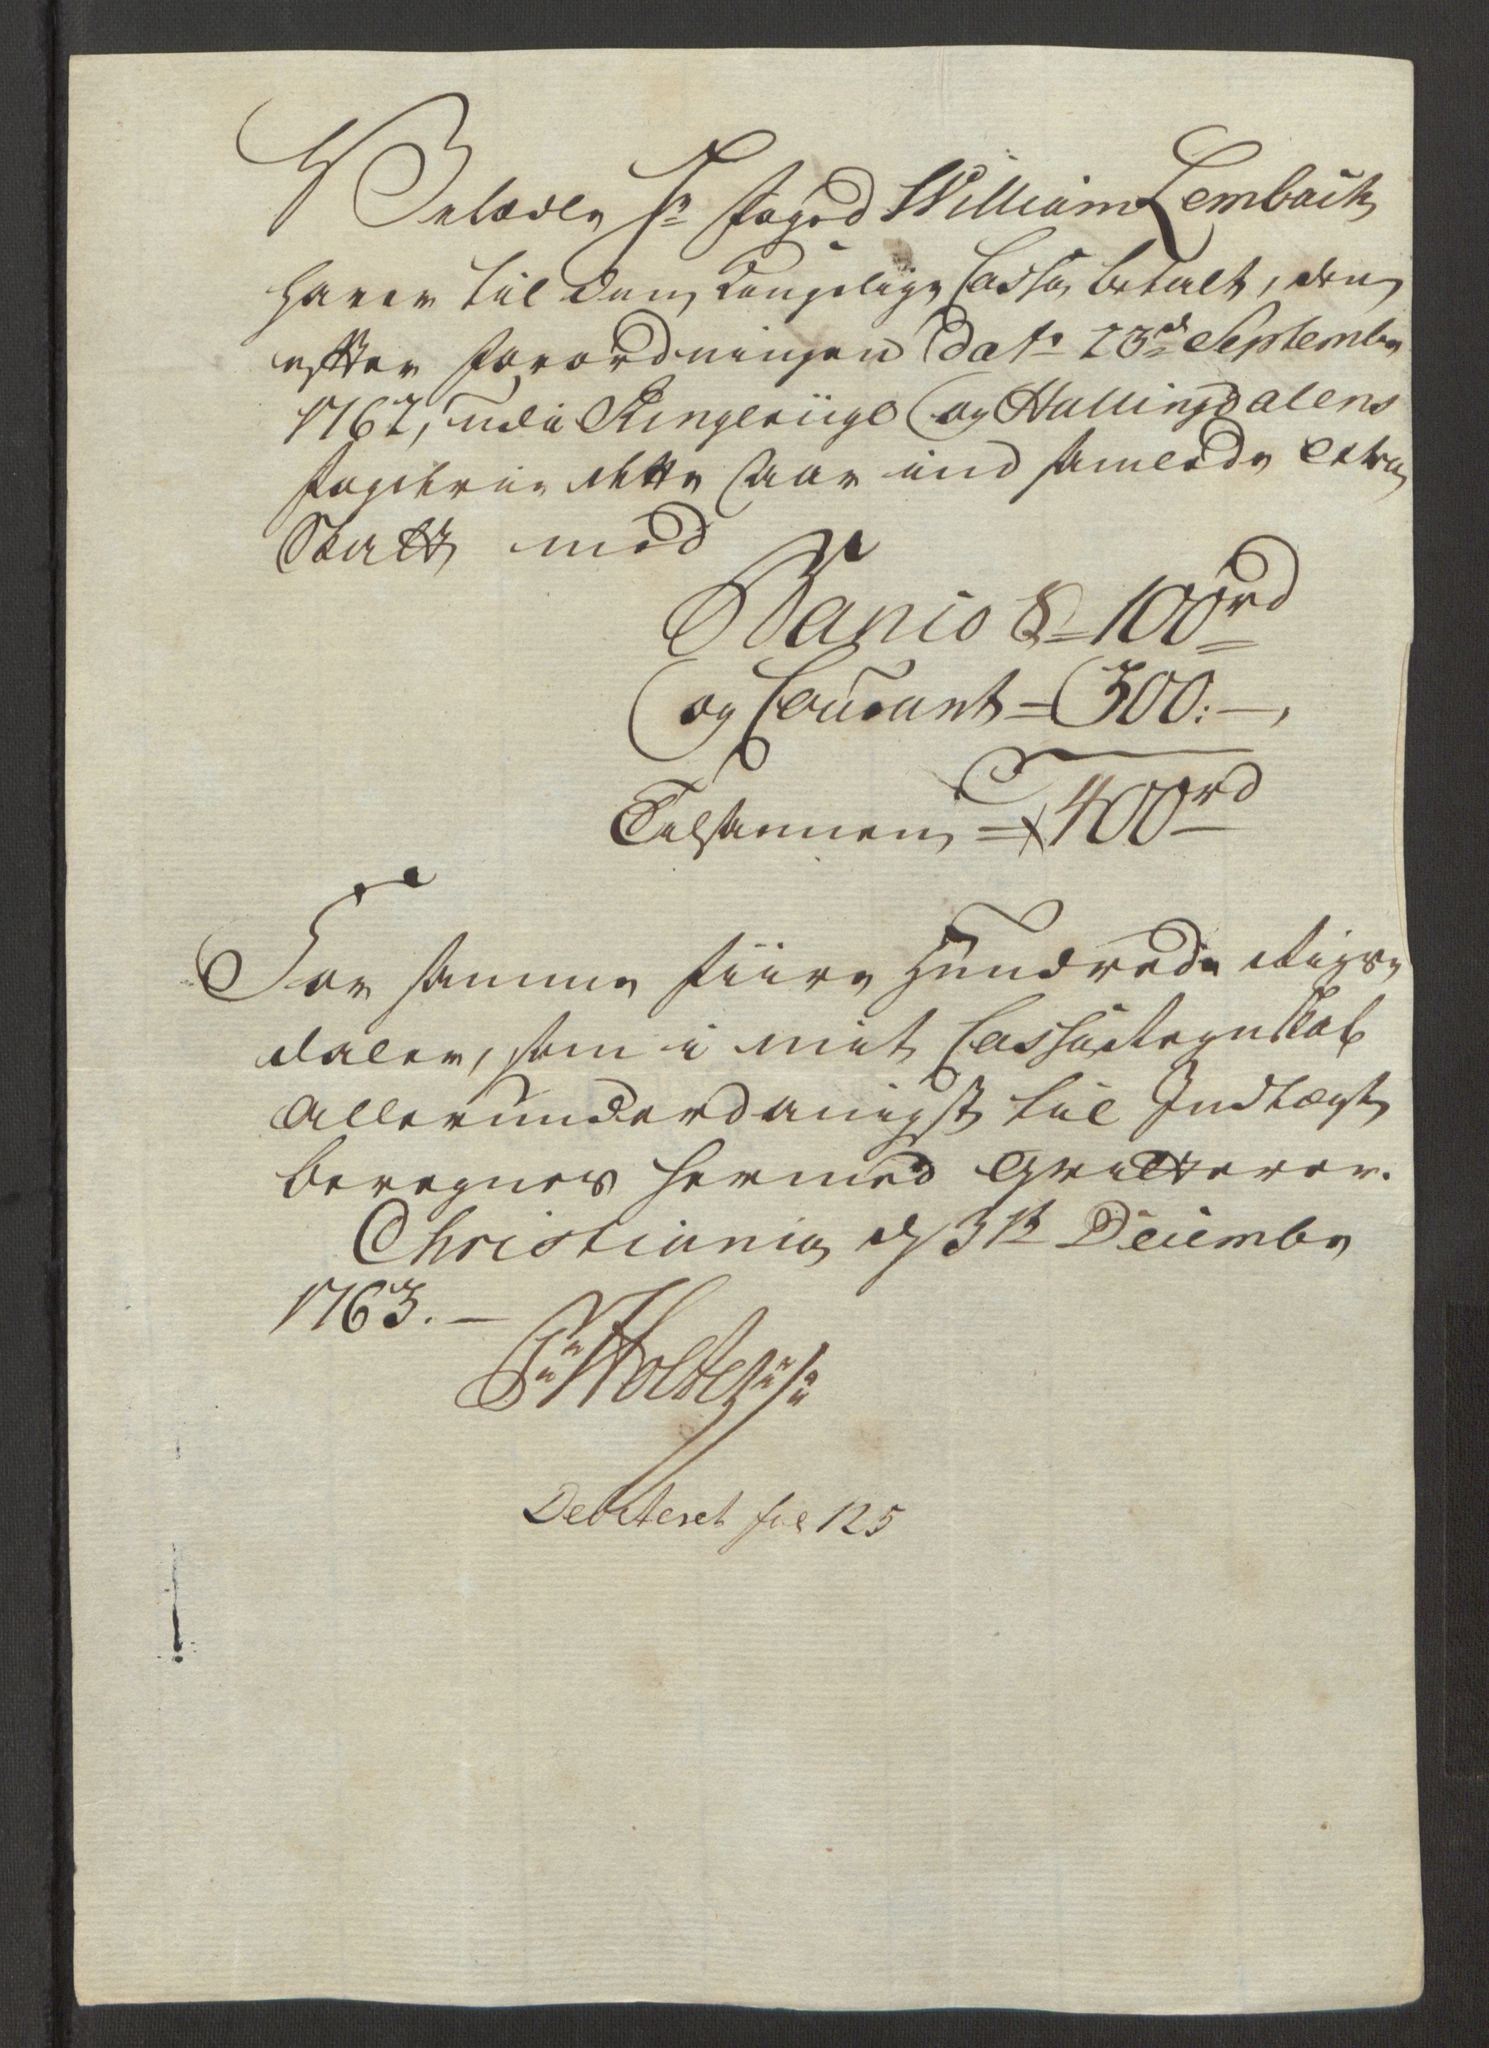 Velædle Hr Foged William Lembach
haver til den Kongelige Cassa betalt, den
efter Forordningen dat: 23de Septembr
1762, udi Ringeriige og Hallingdalens
Fogderie dette Aar ind samlede Extra
Skatt med
Banco S = 100 rd
og Courant = 300: —,
Tilsammen = 400 rd
For samme fiire Hundrede Rigs-
daler, som i mit Cassa Regnskab
allerunderdanigst til Indtægt
beregnes hermed Qvitteres.
Christiania d 31te Decembr
1763. —
Holte
Debiteret fol 125